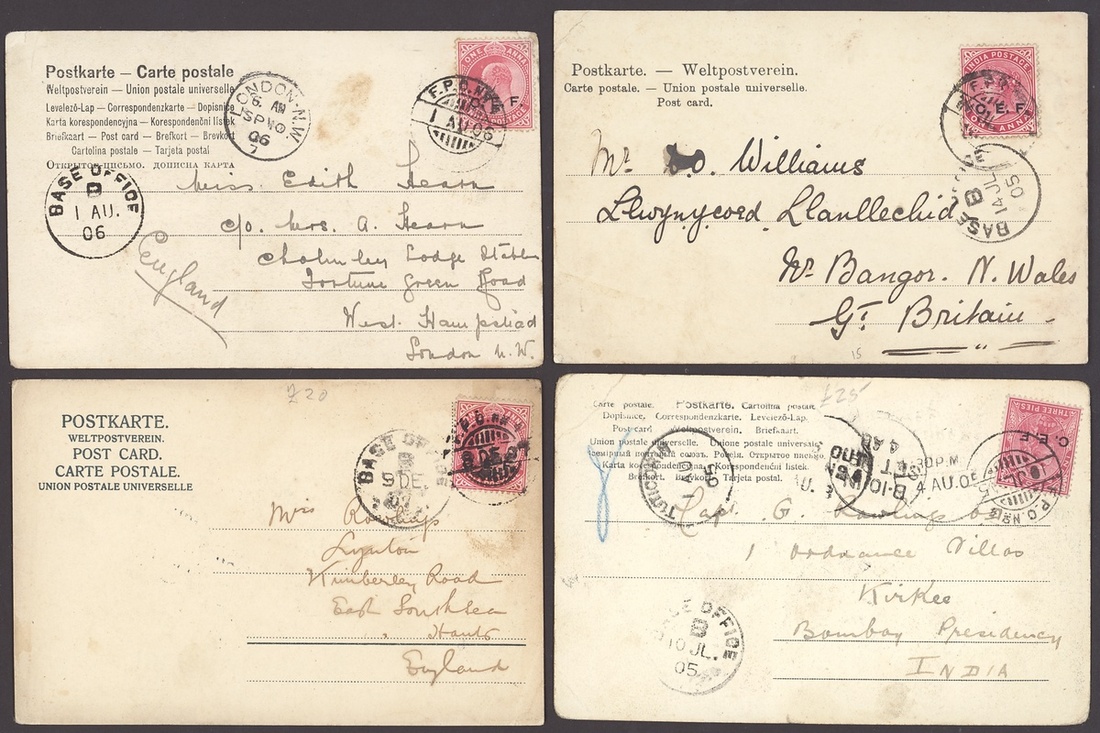 Postkarte – Carte postale
Weltpostverein – Union postale universelle
Levelező-Lap – Correspondenzkarte – Dopisnice
Karta korespondencyjna – Korespondenční lístek
Briefkaart – Post card – Brefkort – Brevkort
Cartolina postale – Tarjeta postal
Открытое письмо. дописна карта
LONDON. N.W
6. AM
SP 10.
06
7
ONE ANNA
F.P.O. No
C. E. F
1 AU. 06
BASE OFFICE
B
1 AU.
06
Miss Edith Hearn
c/o. Mrs. A. Hearn
Cholmley Lodge Stables
Fortune Green Road
West Hampstead
London N.W.
England
Postkarte. — Weltpostverein.
Carte postale. — Union postale universelle.
Post card.
INDIA POSTAGE
F.P.O.
C. E. F
ONE ANNA
BASE
B
14 JL
05
Mr Williams
Llwynycoed Llanllechid
Nr Bangor. N. Wales
Gt Britain
15
£20
POSTKARTE.
WELTPOSTVEREIN.
POST CARD.
CARTE POSTALE.
UNION POSTALE UNIVERSELLE
F.P.O. No
BASE OFFICE
B
9 DE.
Lynton
Kimberley Road
East Southsea
Hants
England
£25
Carte postale. Postkarte. Cartolina postale
Dopisnice. Correspondenzkarte. Levelező-Lap.
Post card Weltpostverein. Briefkaart.
Union postale universelle. Unione postale universale
Karta korespondencyjna. Korespondenční lístek
Brefkort. Brevkort. Tarjeta postal.
TUTICORIN
AU
05
4 AU. 05
THREE PIES
C. E. F
F.P.O. No
Capt. G. Rawlings
1 Ordnance Villas
Kirkee
Bombay Presidency
INDIA
BASE OFFICE
B
10 JL.
05